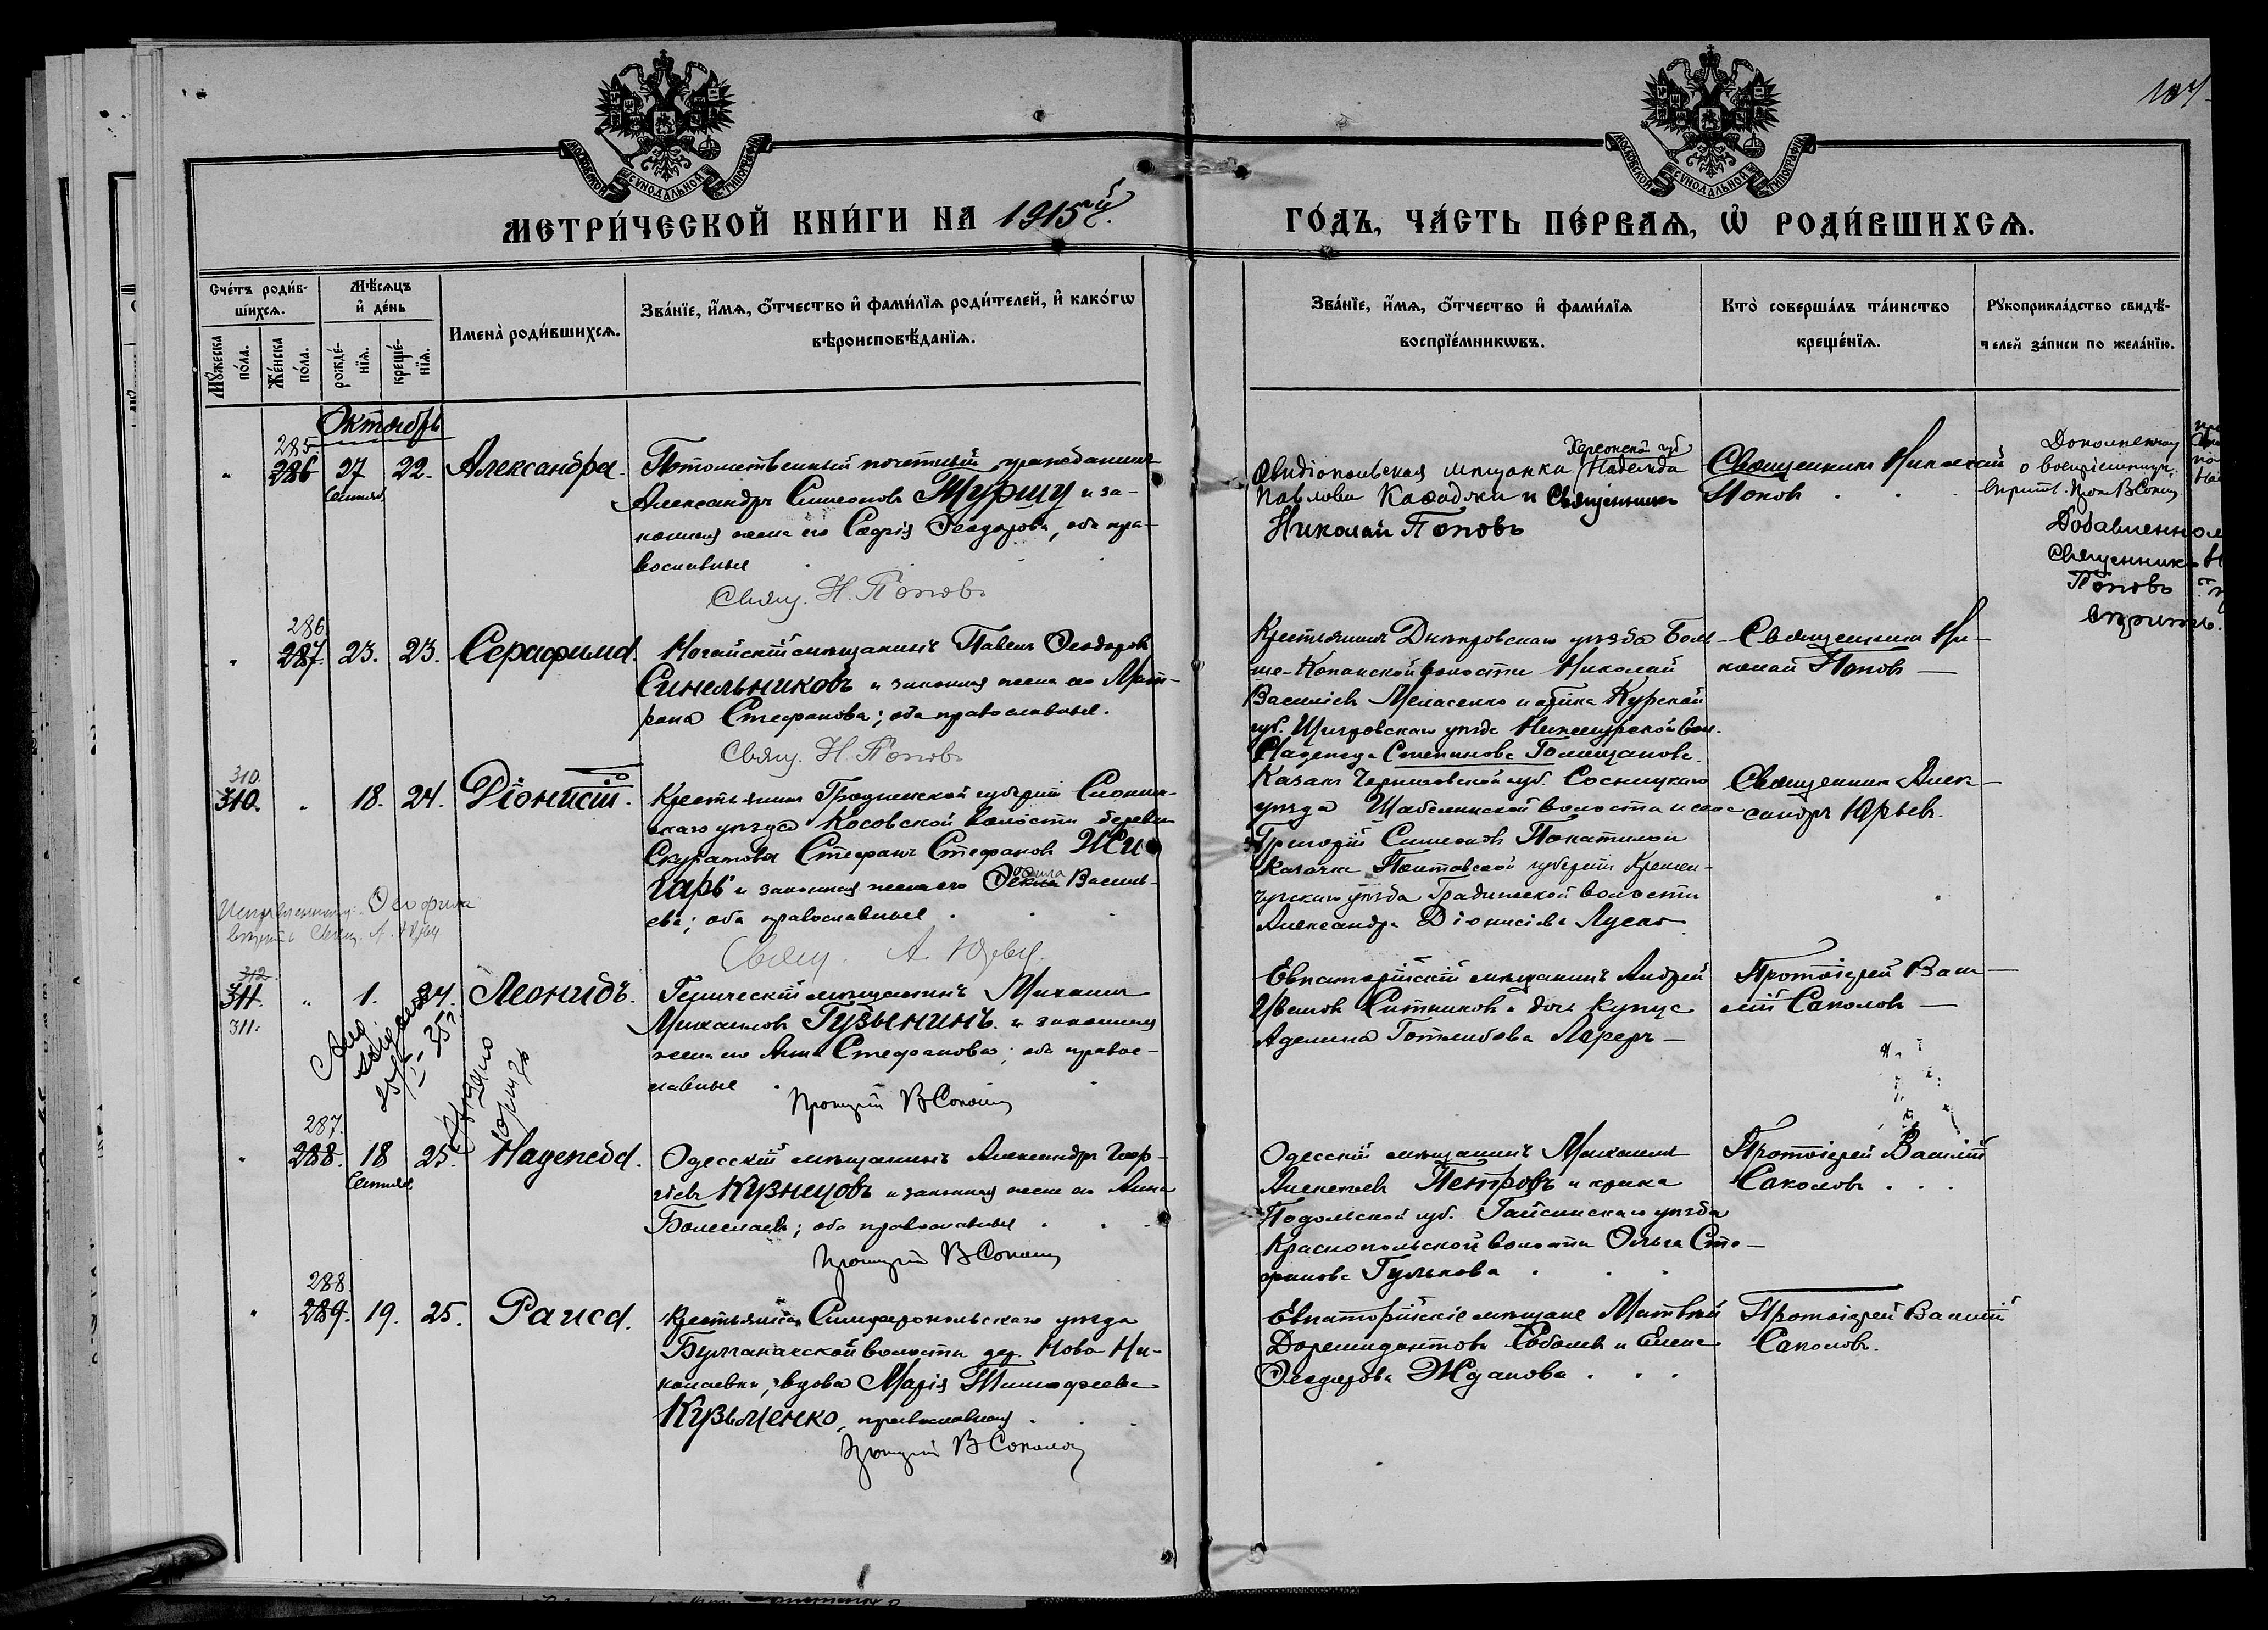 104
МОСКОВСКОЙ СѴНОДАЛЬНОЙ ТИПОГРАФІИ
МОСКОВСКОЙ СѴНОДАЛЬНОЙ ТИПОГРАФІИ
МЕТРИ́ЧЕСКОЙ КНИ́ГИ НА 1915й
ГО́ДЪ, ЧА́СТЬ ПЕ́РВАѦ, Ѡ҆ РОДИ́ВШИХСѦ.
Сче́тъ роди́в-
шихсѧ.
Мꙋ́жеска по́ла.
Же́нска по́ла.
Мѣ́сѧцъ и҆ де́нь
рожде́-
нїѧ.
креще́-
нїѧ.
Имена̀ роди́вшихсѧ.
Зва́нїе, и҆́мѧ, ѻ҆́тчество и҆ фами́лїѧ роди́телей, и҆ како́гѡ
вѣроисповѣ́данїѧ.
Зва́нїе, и҆́мѧ, ѻ҆́тчество и҆ фами́лїѧ
воспрїе́мникѡвъ.
Кто̀ соверша́лъ та́инство
креще́нїѧ.
Рꙋкоприкла́дство свидѣ́-
телей за́писи по жела́нїю.
Октябрь
285.
286 27 22. Александра.
Сентяб.
Потомственный почетный гражданинъ
Александръ Симеоновъ Муршу и за-
конная жена его Софія Ѳеодорова, оба пра-
вославные
Свящ. Н. Поповъ
Херсонской губ
Овидіопольская мѣщанка Надежда
Павлова Каходжи и Священникъ
Николай Поповъ
Священникъ Николай
Поповъ
Дополненному
о воспріемницѣ
вѣрить. Прот. В Сокол
Добавленное
Священникъ Н
Поповъ
вѣрить.
286
287. 23. 23. Серафима.
Ногайскій мѣщанинъ Павелъ Ѳеодоровъ
Синельниковъ и законная жена его Мат-
рона Стефанова; оба православные.
Свящ. Н. Поповъ
Крестьянинъ Днѣпровскаго уѣзда Боль-
ше-Копанской волости Николай
Василіевъ Меласенко и дѣвица Курской
губ. Щигровскаго уѣзда вол.
Надежда Стефанова
Священникъ Ни-
колай Поповъ
310.
310. 18. 24. Діонисій.
Крестьянинъ Гродненской губерніи Слоним-
скаго уѣзда Косовской волости деревни
Скуратова Стефанъ Стефановъ Жи
гарь и законная жена его Ѳеофила Василь-
ева; оба православные
Свящ. А. Юрьевъ
Исправленному: Ѳеофила
вѣрить Свящ. А. Юрьев
Казакъ Черниговской губ. Сосницкаго
уѣзда волости и села
Григорій Симеоновъ Покатилои
казачка Полтавской губерніи Кремен-
чугскаго уѣзда Градижской волости
Александра Діонисіева Луско
Священникъ Алек-
сандръ Юрьевъ.
312
311. 1. 24. Леонидъ.
311.
Геническій мѣщанинъ Михаилъ
Михаиловъ Гузынинъ и законная
жена его Анна Стефанова; оба право-
славные
Протоіерей В Соколов
Евпаторійскій мѣщанинъ Андрей
Ивановъ Ситниковъ и дочь купца
Аделина Готлибова Лереръ
Протоіерей Васи-
лій Соколовъ
287.
288. 18 25. Надежда.
Сентяб
Одесскій мѣщанинъ Александръ Геор-
гіевъ Кузнецовъ и законная жена его Анна
Болеслаева; оба православные
Протоіерей В Соколов
Одесскій мѣщанинъ Михаилъ
Алексѣевъ Петровъ и крест-ка
Подольской губ. Гайсинскаго уѣзда
Краснопольской волости Ольга Сте-
фанова Гулькова
Протоіерей Василій
Соколовъ
288
289. 19. 25. Раиса.
Крестьянка Симферопольскаго уѣзда
Булганакской волости дер. Ново Ни-
колаевки, вдова Марія Тимофеева
Кузьменко, православная
Протоіерей В Соколов
Евпаторійскіе мѣщане Матвѣй
Доремидонтовъ Соболевъ и Елена
Ѳеодорова Жданова
Протоіерей Василій
Соколовъ.